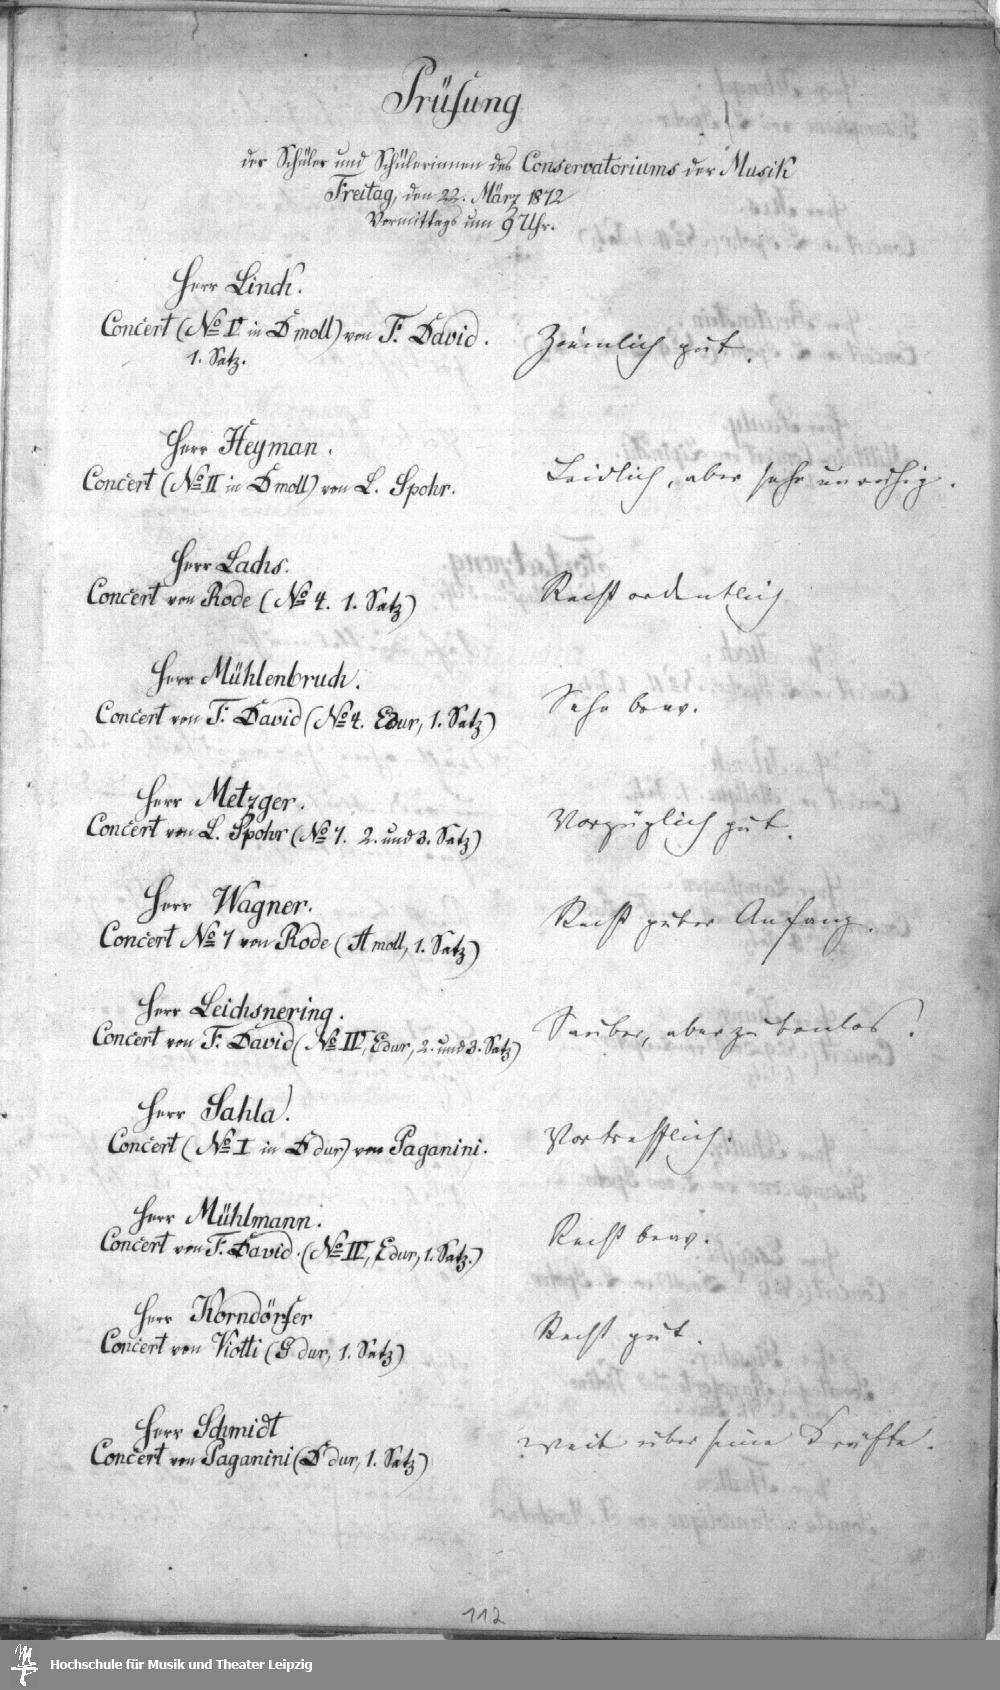 Prüfung
der Schüler und Schülerinnen des Conservatoriums der Musik
Freitag, den 22. März 1872
Vormittags um 9 Uhr.
Herr Linck.
Concert (No V in D moll) von F. David.
1. Satz.
Ziemlich gut.
Herr Heyman.
Concert (No II in D moll) von L. Spohr.
Leidlich, aber sehr unruhig.
Herr Lachs.
Concert von Rode (No 4. 1. Satz)
Recht ordentlich
Herr Mühlenbruch.
Concert von F. David (No 4. Edur, 1. Satz)
Sehr brav.
Herr Metzger.
Concert von L. Spohr (No 7. 2. und 3. Satz)
Vorzüglich gut.
Herr Wagner.
Concert No 7 von Rode (A moll, 1. Satz)
Recht guter Anfang.
Herr Leichsnering.
Concert von F. David (No IV, Edur, 2. und 3. Satz)
Sauber, aber zu tonlos.
Herr Sahla.
Concert (No I in D dur) von Paganini.
Vortrefflich.
Herr Mühlmann.
Concert von F. David. (No IV, Edur, 1. Satz.)
Recht brav.
Herr Korndörfer
Concert von Viotti (G dur, 1. Satz)
Recht gut.
Herr Schmidt
Concert von Paganini (D dur, 1. Satz)
weit über seine Kräfte.
112
Hochschule für Musik und Theater Leipzig